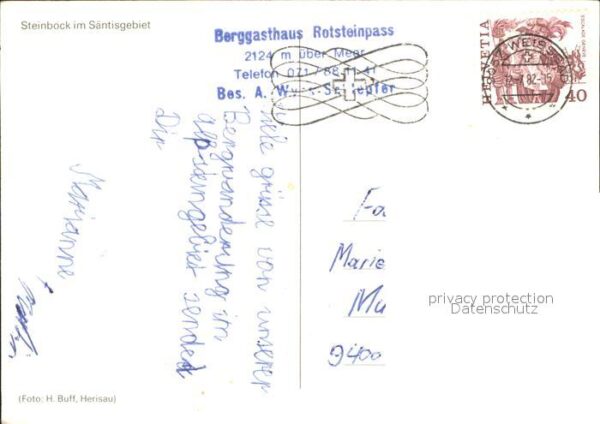 Steinbock im Säntisgebiet
Berggasthaus Rotsteinpass
2124 m über Meer
Telefon 071 / 88 11 41
Bes. A.
HELVETIA
40
82-15
viele grüsse von unserer
Bergwanderung im
alpsteingebiet sendet
Dir
Marianne
Fa
Marie
Mu
9400
privacy protection
Datenschutz
(Foto: H. Buff, Herisau)